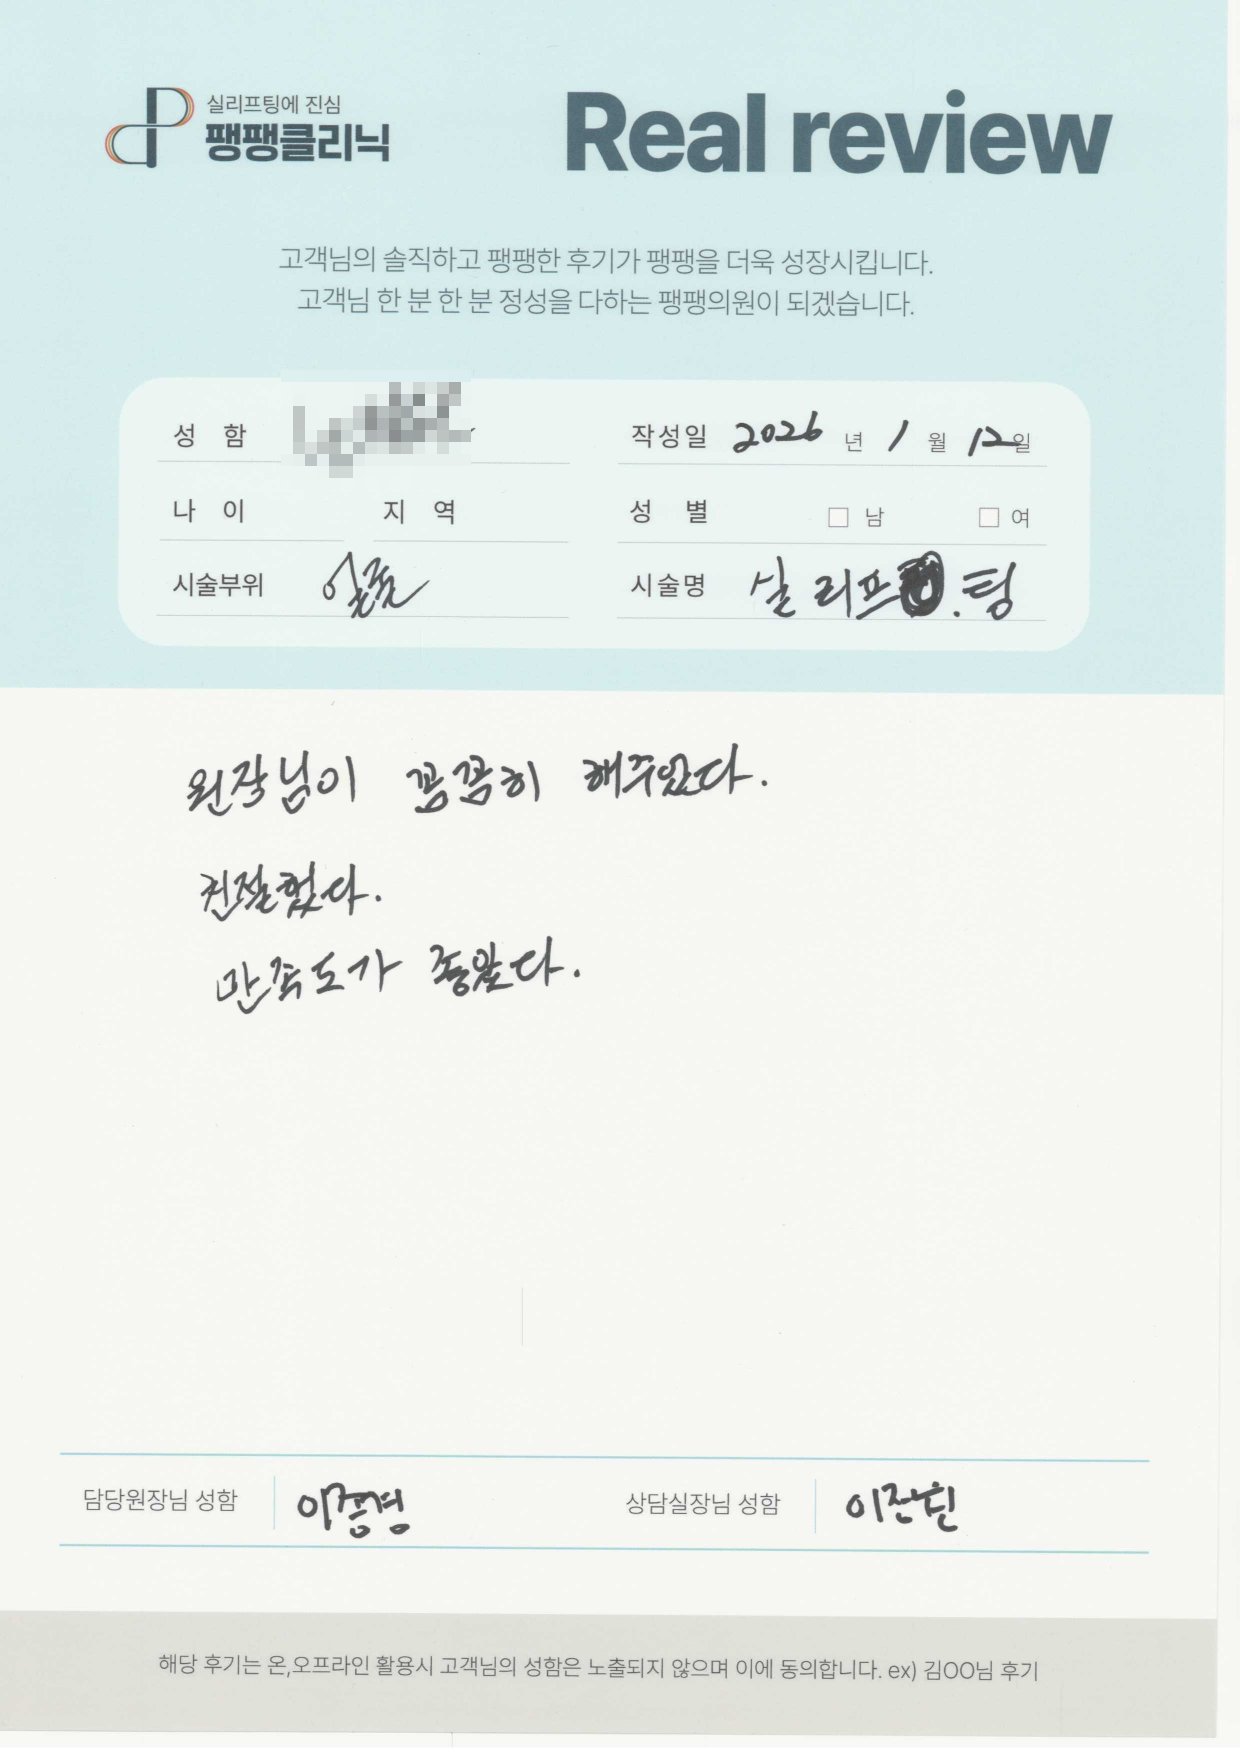 실리프팅에 진심
팽팽클리닉
Real review
고객님의 솔직하고 팽팽한 후기가 팽팽을 더욱 성장시킵니다.
고객님 한 분 한 분 정성을 다하는 팽팽의원이 되겠습니다.
성 함
작성일 2026 년 1 월 12일
나 이 지 역 성 별 □ 남 □ 여
시술부위 얼굴 시술명 실리프.팅
원장님이 꼼꼼히 해주었다.
친절했다.
만족도가 좋았다.
담당원장님 성함 상담실장님 성함
해당 후기는 온,오프라인 활용시 고객님의 성함은 노출되지 않으며 이에 동의합니다. ex) 김OO님 후기